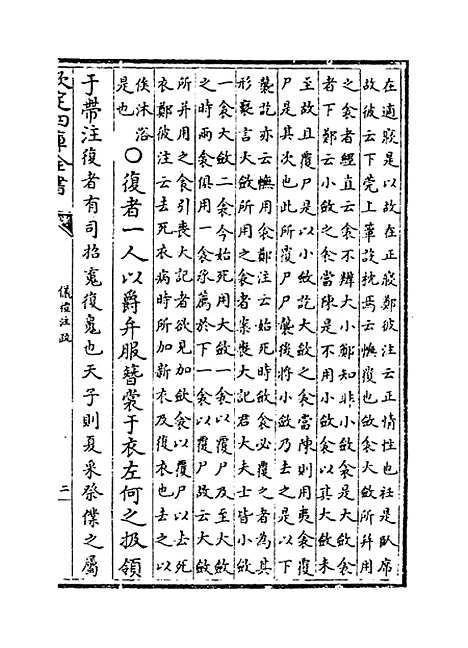 在適寢是以故在正寢鄭彼注云正情性也衽是臥席
故彼云下莞上簟設枕焉云幠覆也斂衾大斂所并用
之衾者經直云衾不辨大小鄭知非小斂衾是大斂衾
者下鄭云小斂之衾當陳是不用小斂衾以其大斂未
至故且覆尸是以小斂訖大斂之衾當陳則用夷衾覆
尸是其次也此所覆尸尸襲後將小斂乃去之是以下
襲訖亦云幠用衾鄭注云始死時斂衾必覆之者為其
形褻言大斂所用之衾者案喪大記君大夫士皆小斂
一衾大斂二衾今始死用大斂一衾以覆尸及至大斂
之時兩衾俱用一衾承薦於下一衾以覆尸故云大斂
所并用之衾引喪大記者欲見加斂衾以覆尸以去死
衣鄭彼注云去死衣病時所加新衣及復衣也去之以
俟沐浴
是也 ○復者一人以爵弁服簪裳于衣左何之扱領
于帶注復者有司招䰟復魄也天子則夏采祭僕之屬
欽定四庫全書
儀禮注疏
三